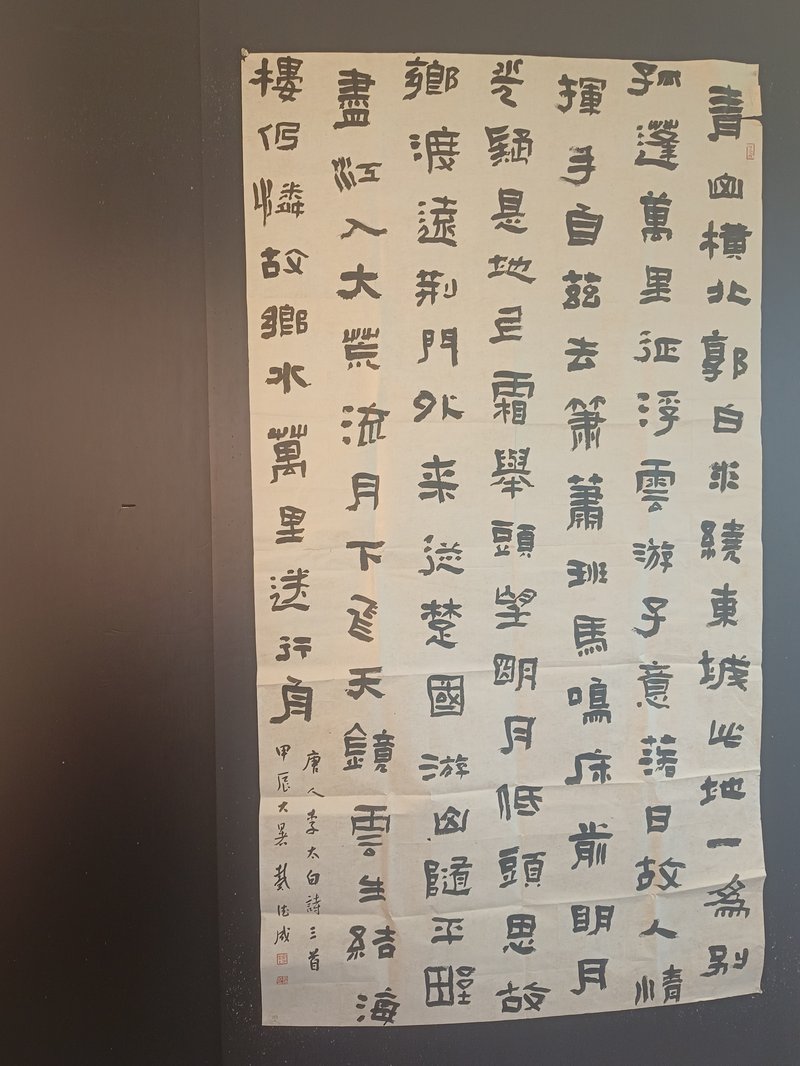 青山橫北郭白水繞東城此地一為別
孤蓬萬里征浮雲游子意落日故人情
揮手自茲去簫蕭班馬鳴床前明月
光疑是地上霜舉頭望明月低頭思故
鄉渡遠荊門外来從楚國游山隨平野
盡江入大荒流月下飛天鏡雲生結海
樓仍憐故鄉水萬里送行舟
唐人李太白詩三首
甲辰大暑